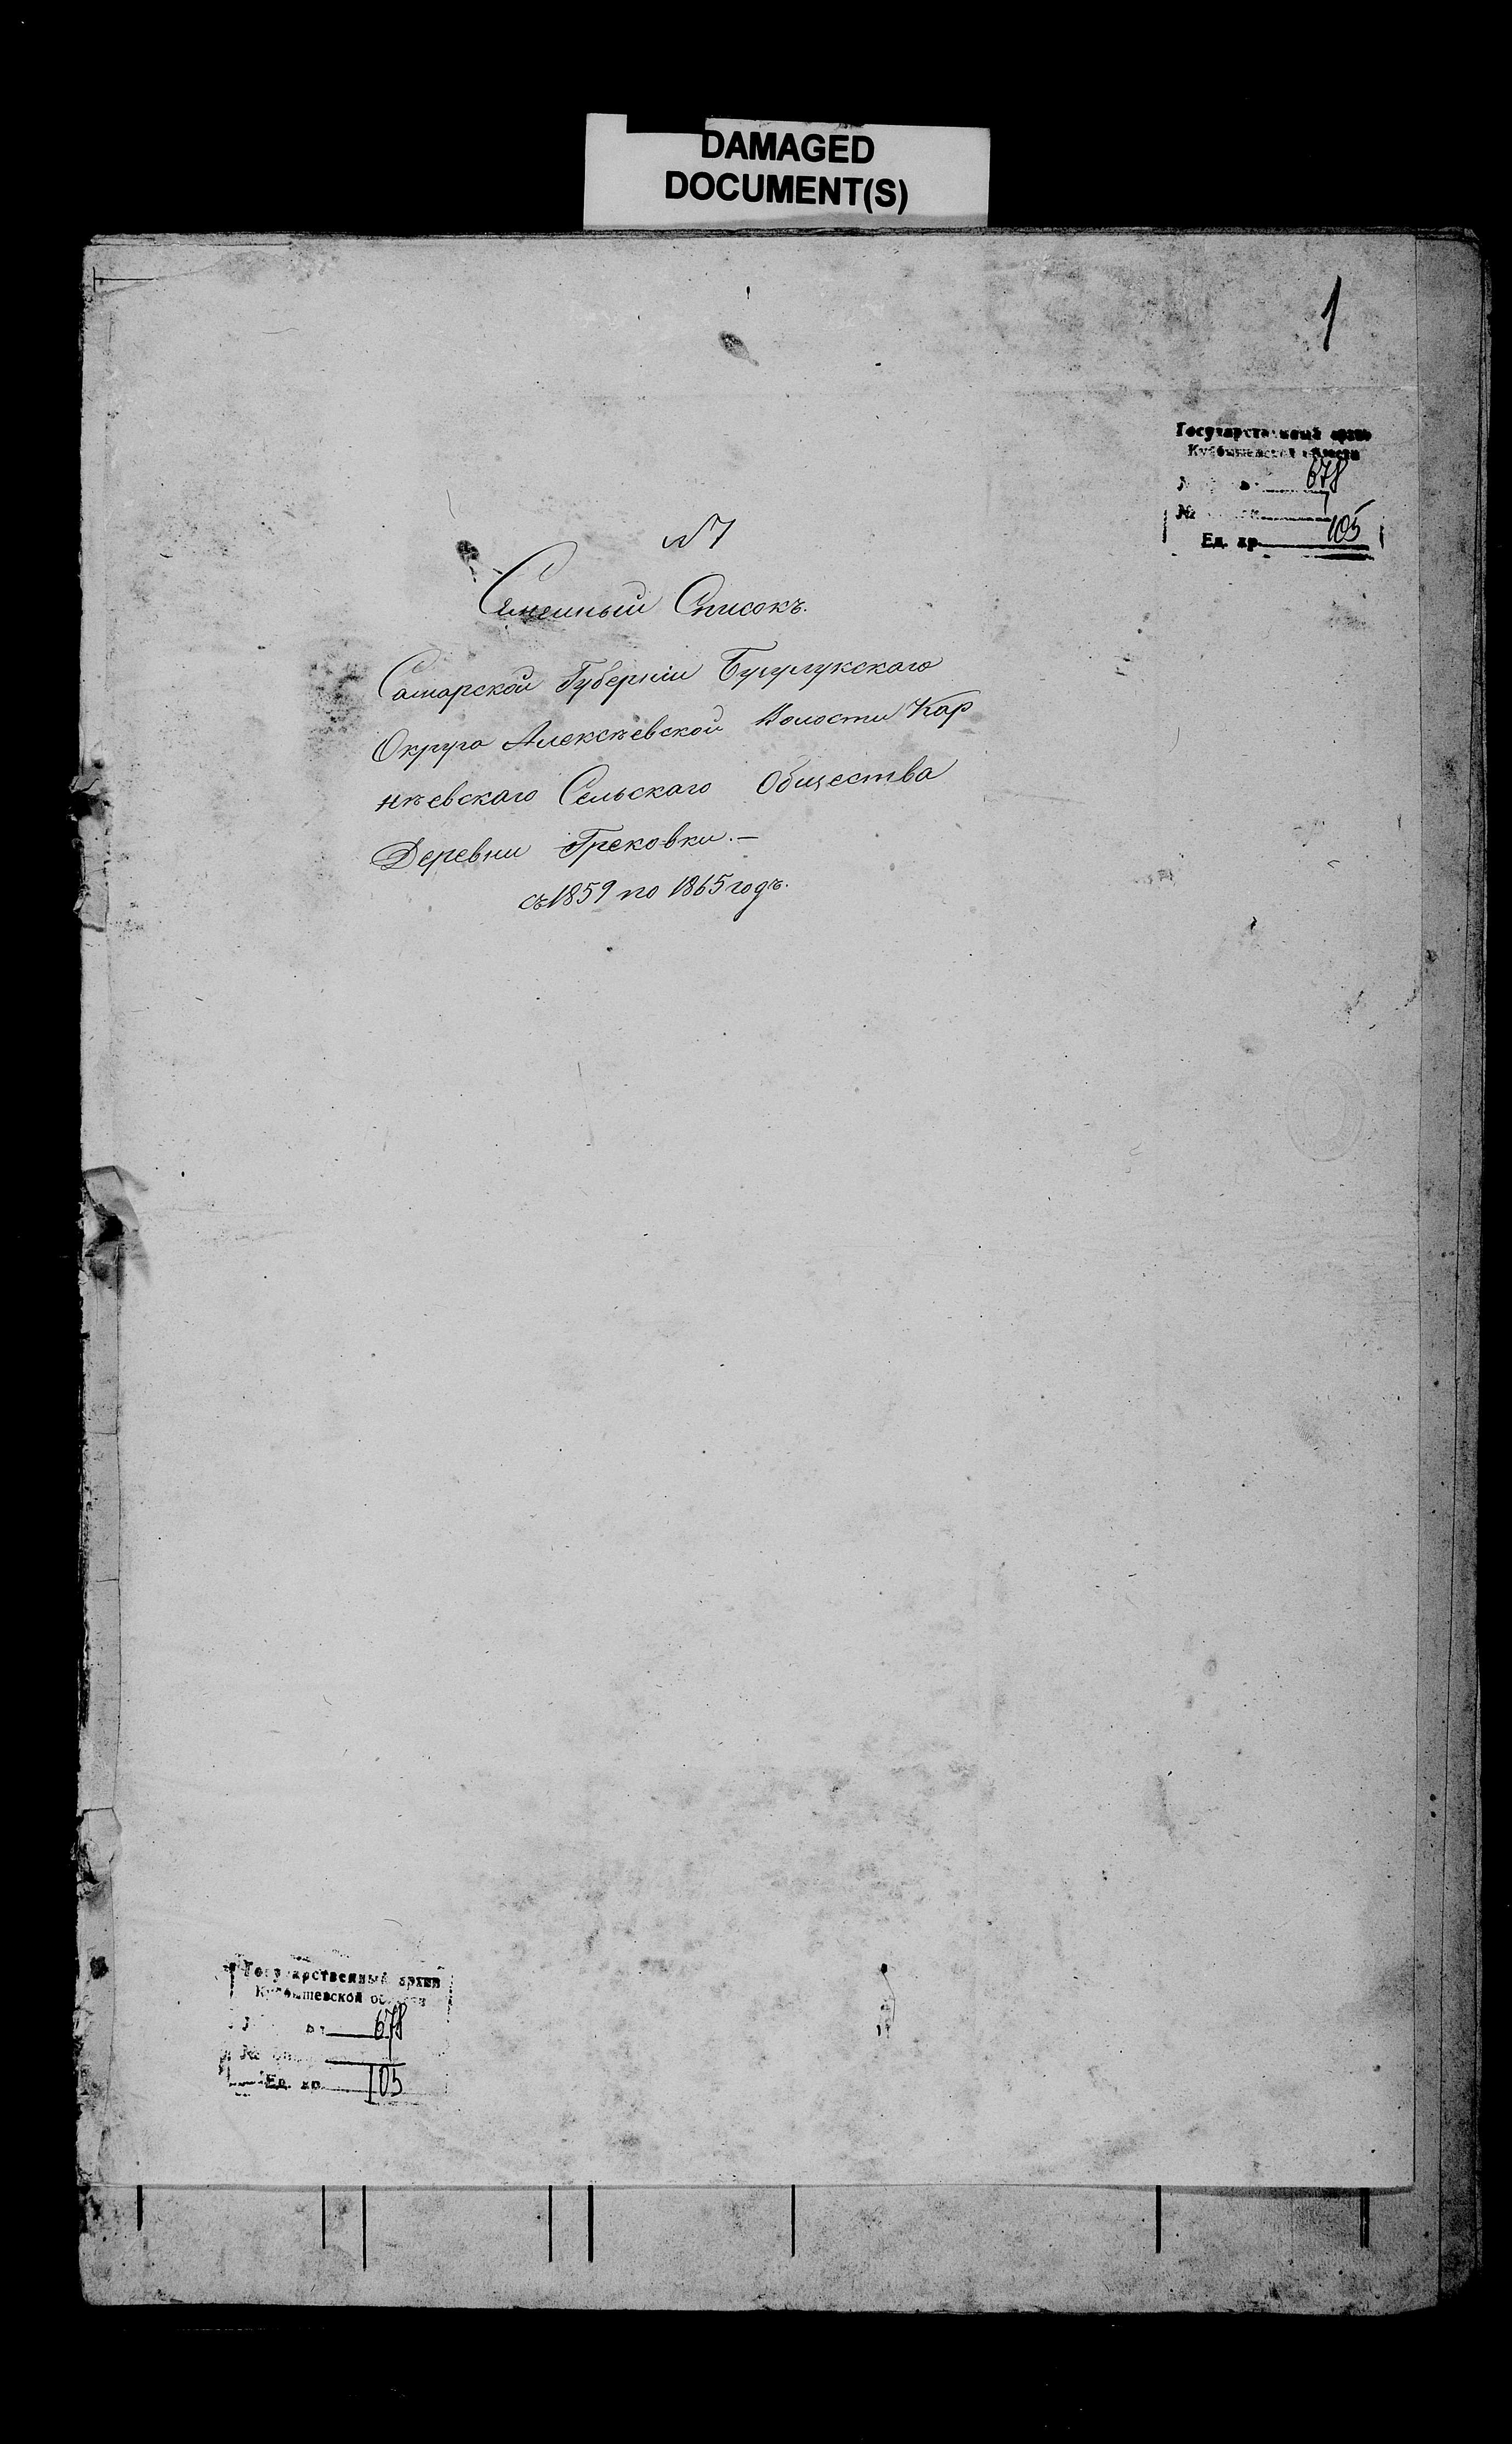 DAMAGED
DOCUMENT(S)
1
Государственный архив
Куйбышевской области
678
№
Ед. хр. 105
№ 7
Семейный Списокъ.
Самарской Губерніи Бугурукскаго
Округа Алексѣевской Волости Кар
нѣевскаго Сельскаго Общества
Деревни Грековки.—
съ 1859 по 1865 годъ.
Государственный архив
Куйбышевской области
678
№
Ед. хр. 105